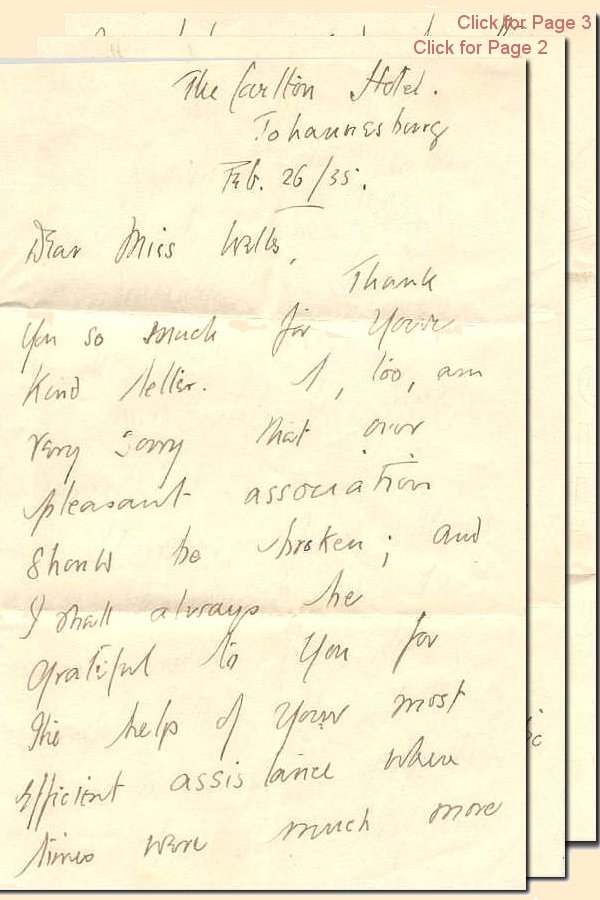 Click for Page 3
Click for Page 2
The Carlton Hotel.
Johannesburg
Feb. 26/35.
Dear Miss Wells,
Thank
you so much for your
kind letter. I, too, am
very sorry that our
pleasant association
should be broken; and
I shall always be
grateful to you for
the help of your most
efficient assistance when
times were much more